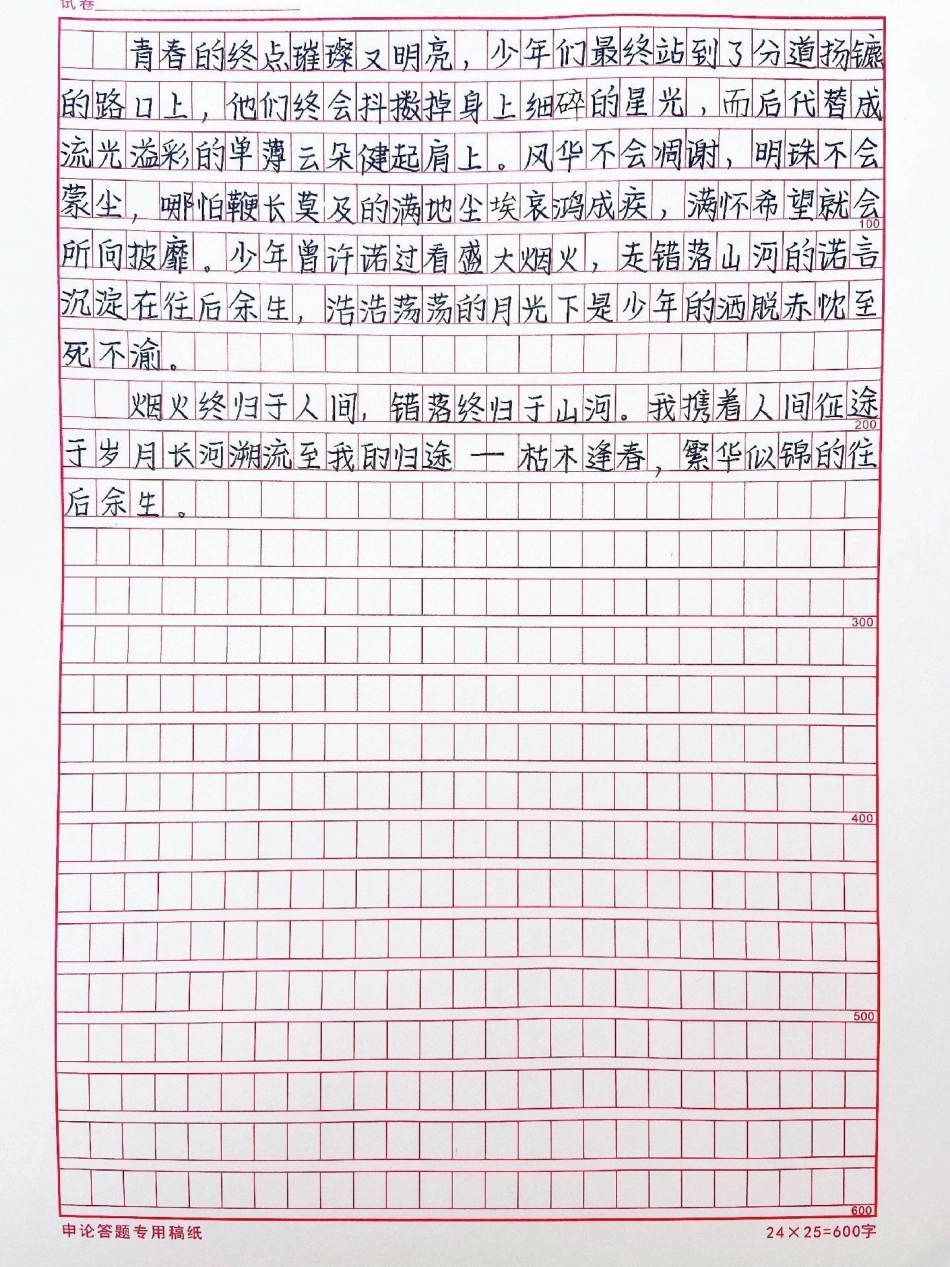 试卷
青春的终点璀璨又明亮，少年们最终站到了分道扬镳
的路口上，他们终会抖擞掉身上细碎的星光，而后代替成
流光溢彩的单薄云朵健起肩上。风华不会凋谢，明珠不会
蒙尘，哪怕鞭长莫及的满地尘埃哀鸿成疾，满怀希望就会
100
所向披靡。少年曾许诺过看盛大烟火，走错落山河的诺言
沉淀在往后余生，浩浩荡荡的月光下是少年的洒脱赤忱至
死不渝。
烟火终归于人间，错落终归于山河。我携着人间征途
200
于岁月长河溯流至我的归途一枯木逢春，繁华似锦的往
后余生。
300
400
500
600
申论答题专用稿纸 24×25=600字